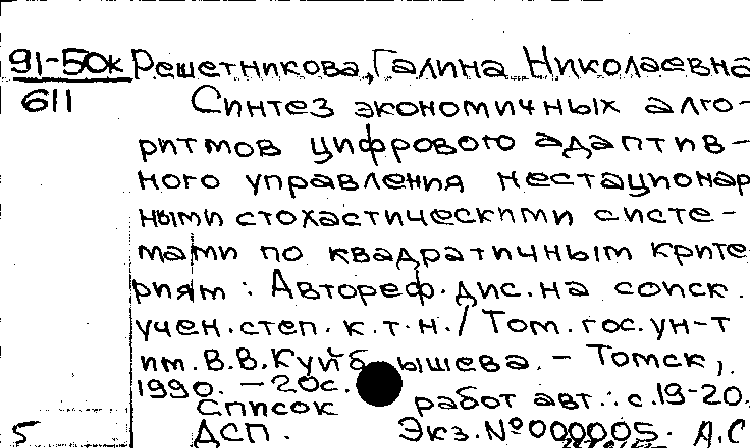 91-50к Решетникова, Галина Николаевна
611 Синтез экономичных алго-
ритмов цифрового адаптив-
ного управления нестационар
ными стохастическими систе-
мами по квадратичным крите
риям : Автореф. дис. на соиск.
учен. степ. к.т.н. / Том. гос. ун-т
им. В.В. Куйбышева. – Томск,
1990. – 20с.
Список работ авт.: с.19-20.
5 ДСП. Экз. №000005. А.С